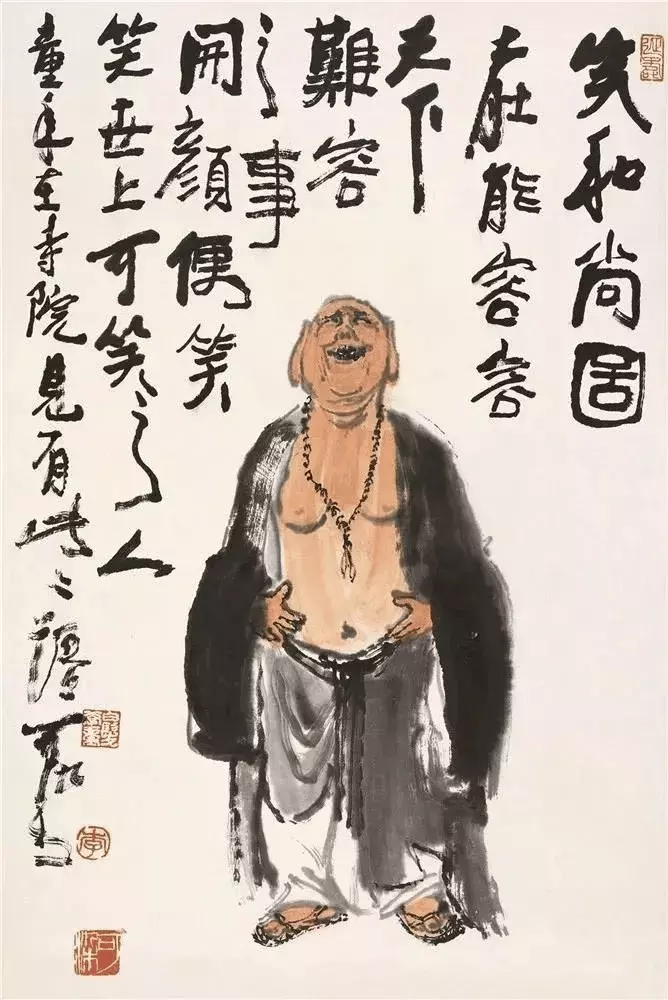 笑和尚圖
大肚能容容
天下
難容
之事
開顔便笑
笑世上可笑之人
童年在寺院見有此可染
李
可染